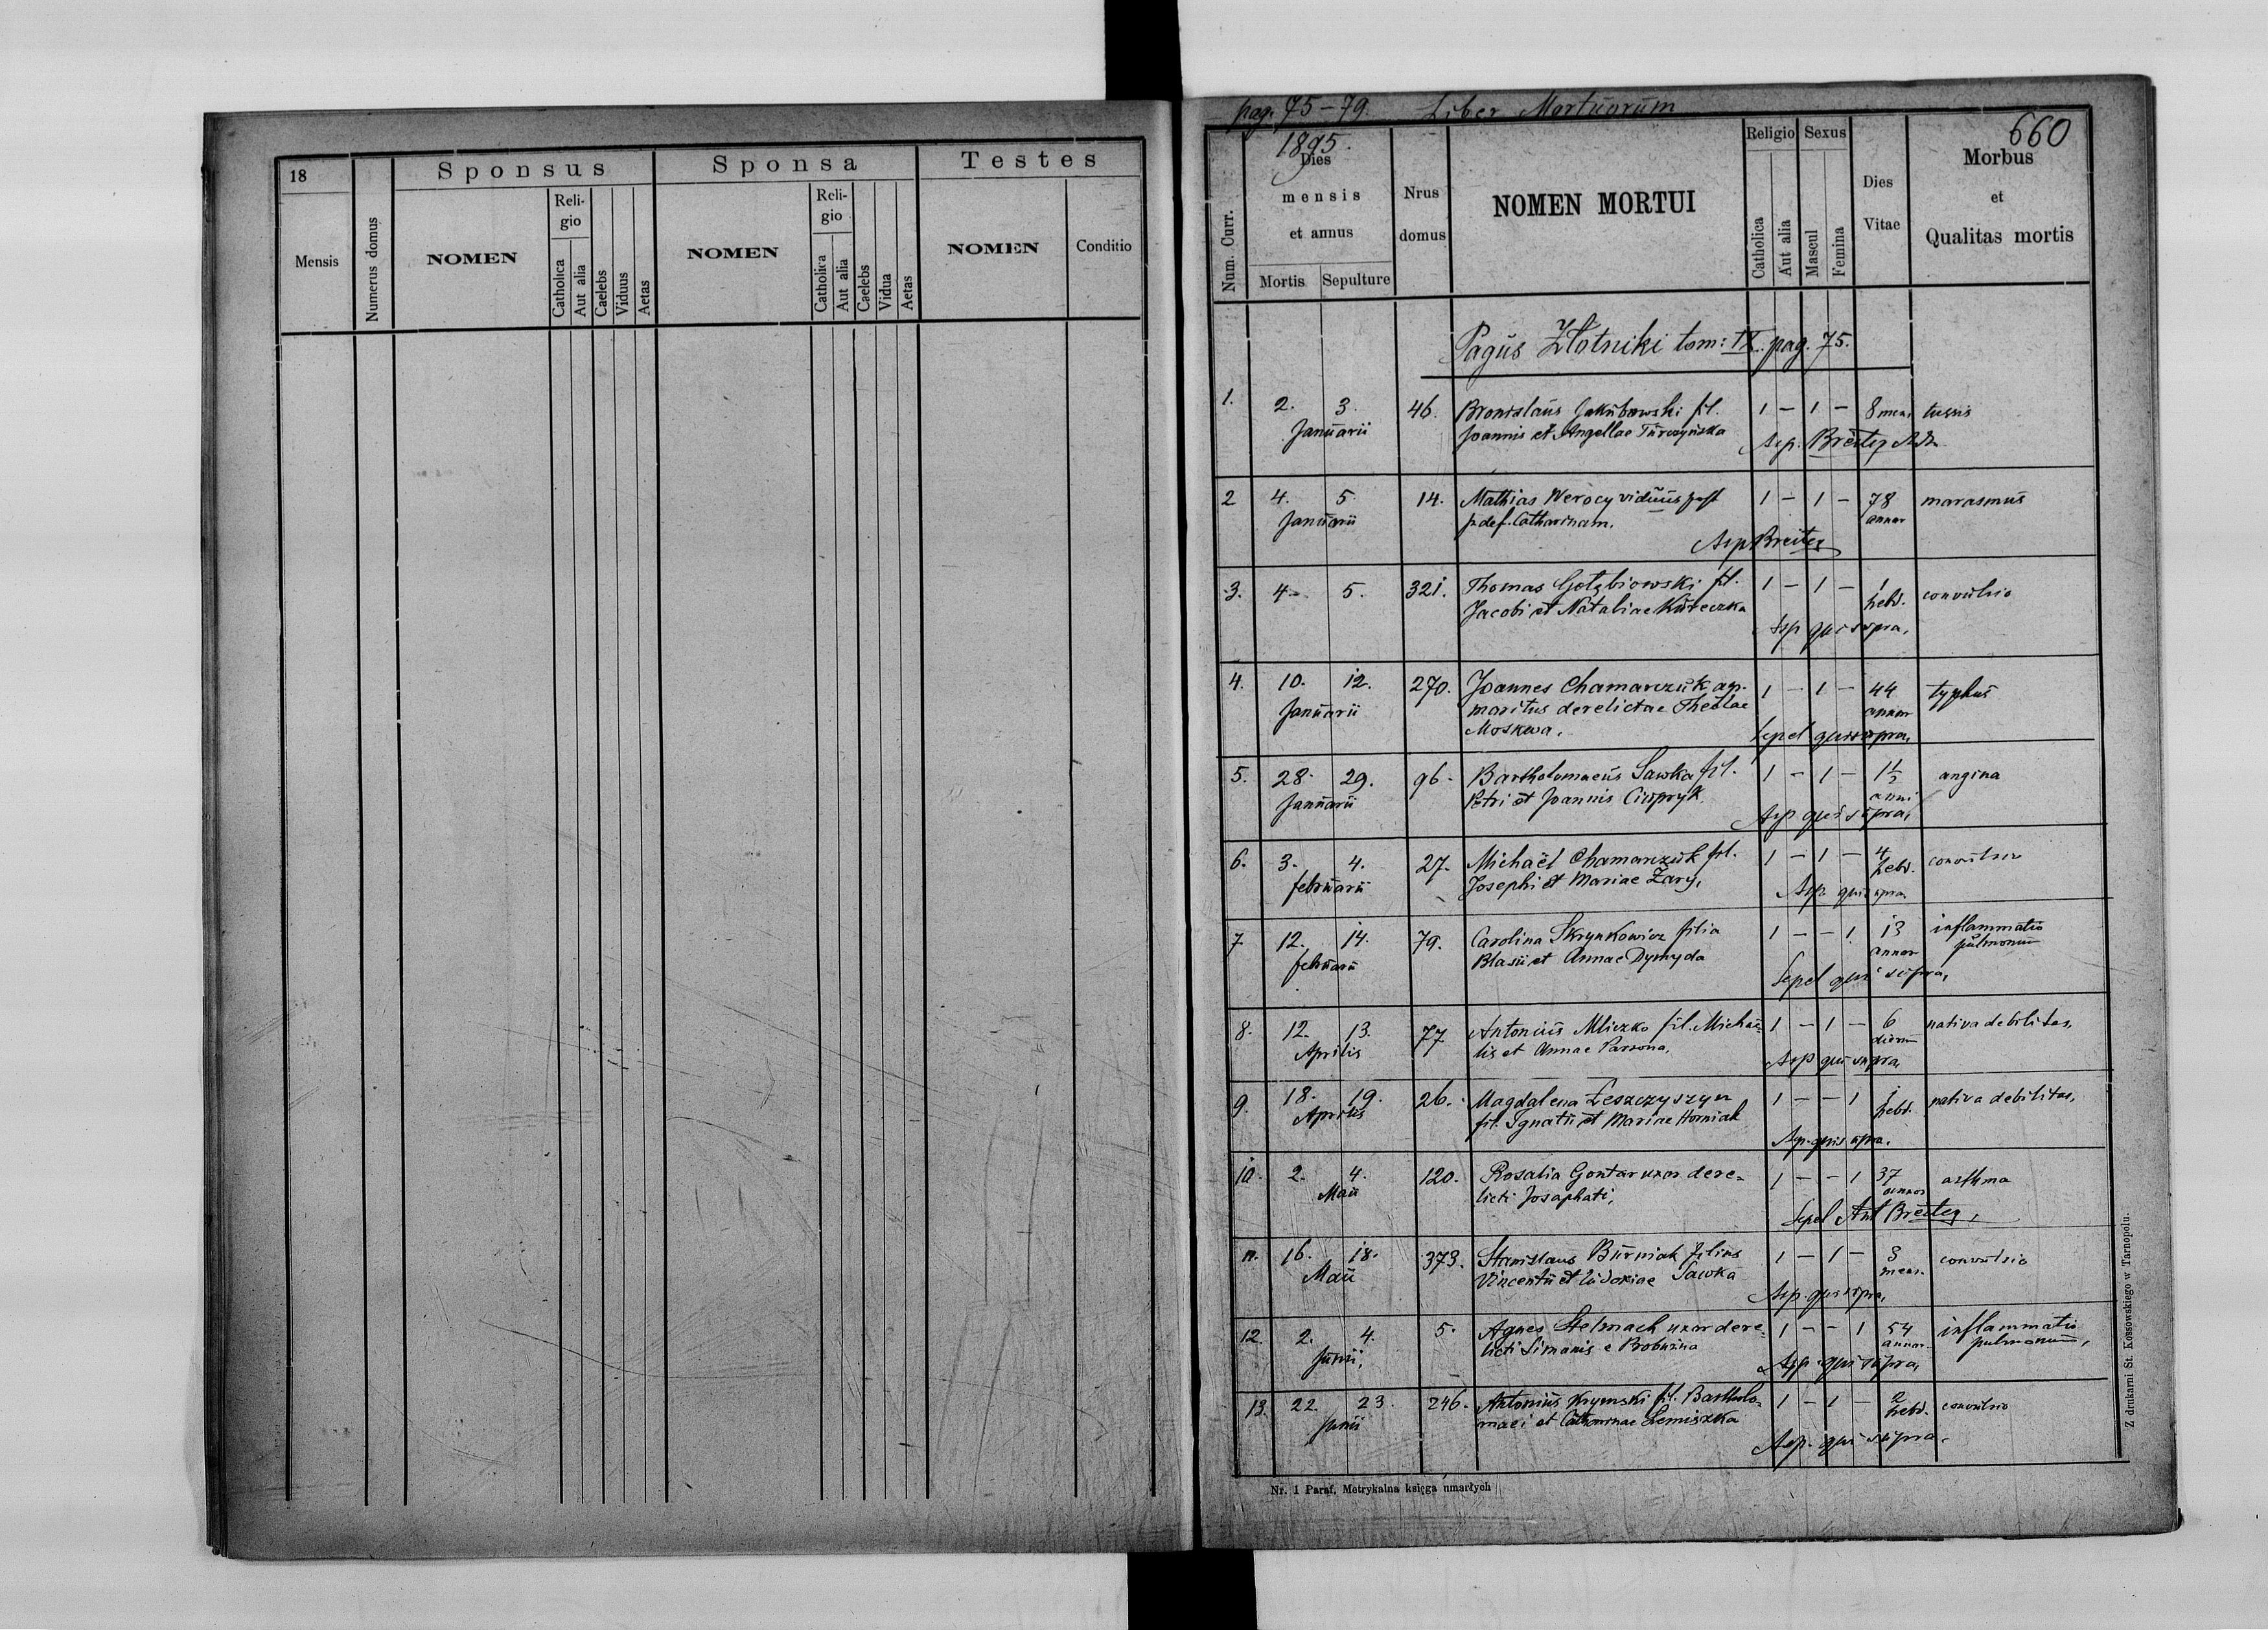 18
Mensis
Numerus domus
Sponsus
NOMEN
Reli-
gio
Catholica
Aut alia
Caelebs
Viduus
Aetas
Sponsa
NOMEN
Reli-
gio
Catholica
Aut alia
Caelebs
Vidua
Aetas
Testes
NOMEN
Conditio
pag. 75-79. Liber Mortuorum
660
Num. Curr.
1895.
Dies
mensis
et annus
Mortis Sepulture
Nrus
domus
NOMEN MORTUI
Religio
Catholica
Aut alia
Sexus
Mascul
Femina
Dies
Vitae
Morbus
et
Qualitas mortis
Pagus Złotniki tom: IX. pag. 75.
1. 2. 3. 46. Bronislaus Jakubowski fil. 1 - 1 - 8 men. tussis
Januarii Joannis et Angellae Turczyńska
Sep. Breiter
2 4. 5. 14. Mathias Werocy viduus post 1 - 1 - 78 marasmus
Januarii p. def. Catharinam. annor
Sep Breiter
3. 4. 5. 321. Thomas Gołębiowski fil. 1 - 1 - 1 convulsio
Jacobi et Nataliae Kureczka hebd.
Sep qui supra,
4. 10. 12. 270. Joannes Chamarczuk ap. 1 - 1 - 44 typhus
Januarii maritus derelictae Theclae annor
Moskwa. Sepel qui supra,
5. 28. 29. 96. Bartholomaeus Sawka fil. 1 - 1 - angina
Januarii Petri et Joannis Ciupryk anni
Sep qui supra,
6. 3. 4. 27. Michaël Chamarczuk fil. 1 - 1 - 4 convulsio
februarii Josephi et Mariae Zary, hebd.
Sep. qui supra
7 12. 14. 79. Carolina Skrynkowicz filia 1 - - 1 13 inflammatio
februarii Blasii et Annae Dymyda annor pulmonum
Sepel qui supra,
8. 12. 13. 77 Antonius Mliczko fil. Michaë- 1 - 1 - 6 nativa debilitas.
Aprilis lis et Annae Parsona, dierum
Sep qui supra,
9. 18. 19. 26. Magdalena Leszczyszyn 1 - - 1 1 nativa debilitas,
Aprilis fil. Ignatii et Mariae Horniak hebd.
Sep. qui supra.
10. 2. 4. 120. Rosalia Gontar uxor dere- 1 - - 1 37 asthma
Maii licti Josaphati, annor
Sepel Ant Breiter,
11. 16. 18. 373. Stanislaus Burniak filius 1 - 1 - 3 convulsio
Maii Vincentii et Eudoxiae Sawka mens.
Sep. qui supra,
12. 2. 4. 5. Agnes Stelmach uxor dere- 1 - - 1 54 inflammatio
Junii, licti Simonis e Bobuzina annor pulmonum,
Sep. qui supra,
13. 22. 23. 246. Antonius Krymski fil. Bartholo- 1 - 1 - 2 convulsio
Junii maei et Catharinae Lemiszka hebd.
Sep. qui supra.
Nr. 1 Paraf. Metrykalna księga umarłych
Z drukarni St. Kossowskiego w Tarnopolu.